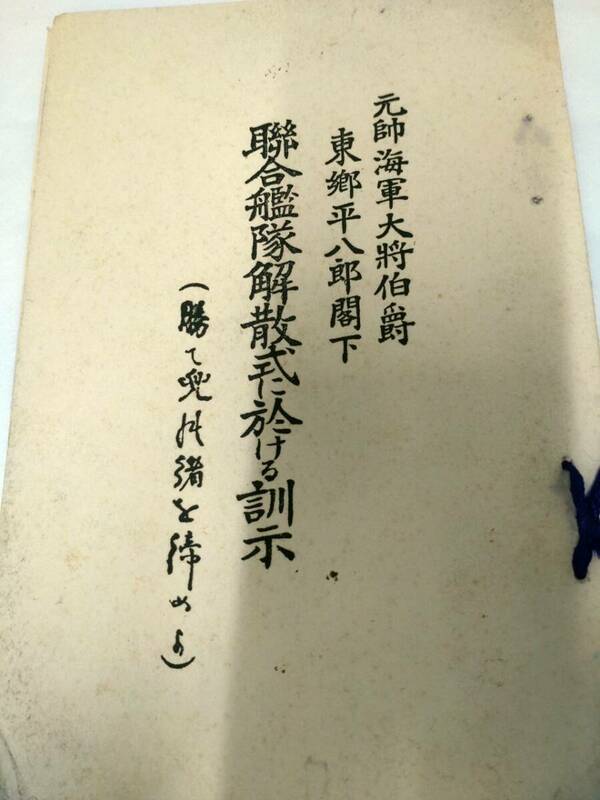 元帥海軍大將伯爵
東鄉平八郎閣下
聯合艦隊解散式に於ける訓示
(勝て兜の緒を締めよ)